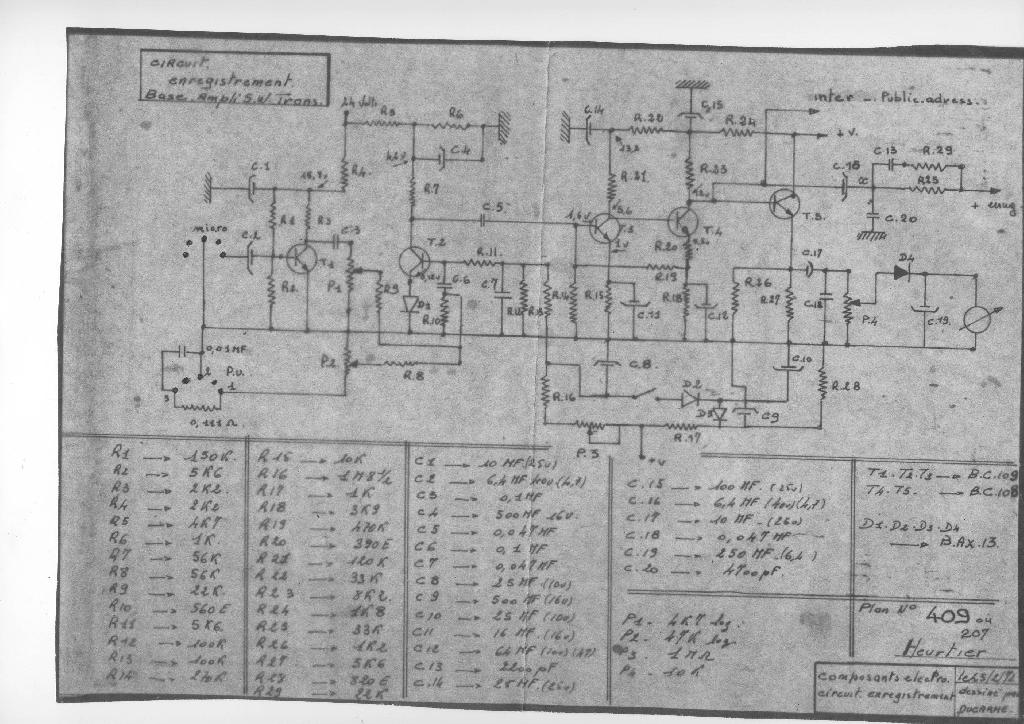 CIRCUIT.
enregistrement.
Base. Ampli 5.W Trans.
24 Volts
R5
R6
C.14
C.15
R.20
R.24
inter - Public.adress.
+ V.
C.1
R4
C.4
R.7
R.21
R.23
C.16
C.13
R.29
R25
+ enreg
C.20
micro
C.2
R1
R3
C.3
T.1
R2
P1
R9
T.2
C.5
R.11
C.6
C.7
D1
R10
1,4v
T.3
T.4
T.5
1v
R.20
R.19
R14
R.15
R.18
C.11
C.12
R.26
R.27
C.17
C.18
P.4
D4
C.19
0,01MF
P.V.
2
3
1
P.2
R.8
R.16
C.8
D2
D3
C9
C.10
R.28
R.17
P.3
+v
R1 → 150K
R2 → 5K6
R3 → 2K2
R4 → 2K2
R5 → 4K7
R6 → 1K
R7 → 56K
R8 → 56K
R9 → 22K
R10 → 560E
R11 → 5K6
R12 → 100K
R13 → 100K
R14 → 270K
R15 → 10K
R16 → 1M8
R17 → 1K
R18 → 3K9
R19 → 470K
R20 → 390E
R21 → 120K
R22 → 33K
R23 → 8K2
R24 → 1K8
R25 → 33K
R26 → 1K2
R27 → 5K6
R28 → 820E
R29 → 22K
C1 → 10 MF.(25v)
C2 → 6,4 MF
C3 → 0,1MF
C.4 → 500 MF 16v.
C5 → 0,047MF
C6 → 0,1 MF
C7 → 0,047MF
C8 → 25 MF (10v)
C9 → 500 MF (16v)
C10 → 25 MF (10v)
C11 → 16 MF (16v)
C12 → 64 MF
C.13 → 2200 pF
C.14 → 25MF (25v)
C.15 → 100 MF (25v)
C.16 → 6,4 MF
C.17 → 10 MF (25v)
C.18 → 0,047MF
C.19 → 250 MF (6,4)
C.20 → 4700pF
P1 - 4K7 log.
P2 - 47K log
P3 - 1MΩ
P4 - 10K
T1.T2.T3 → B.C.109
T4.T5. → B.C.108
D1.D2.D3.D4
→ B.AX.13.
Plan N° 409 04
207
Heurtier
composants electro.
circuit enregistrement
dessiné par
DUCARME.